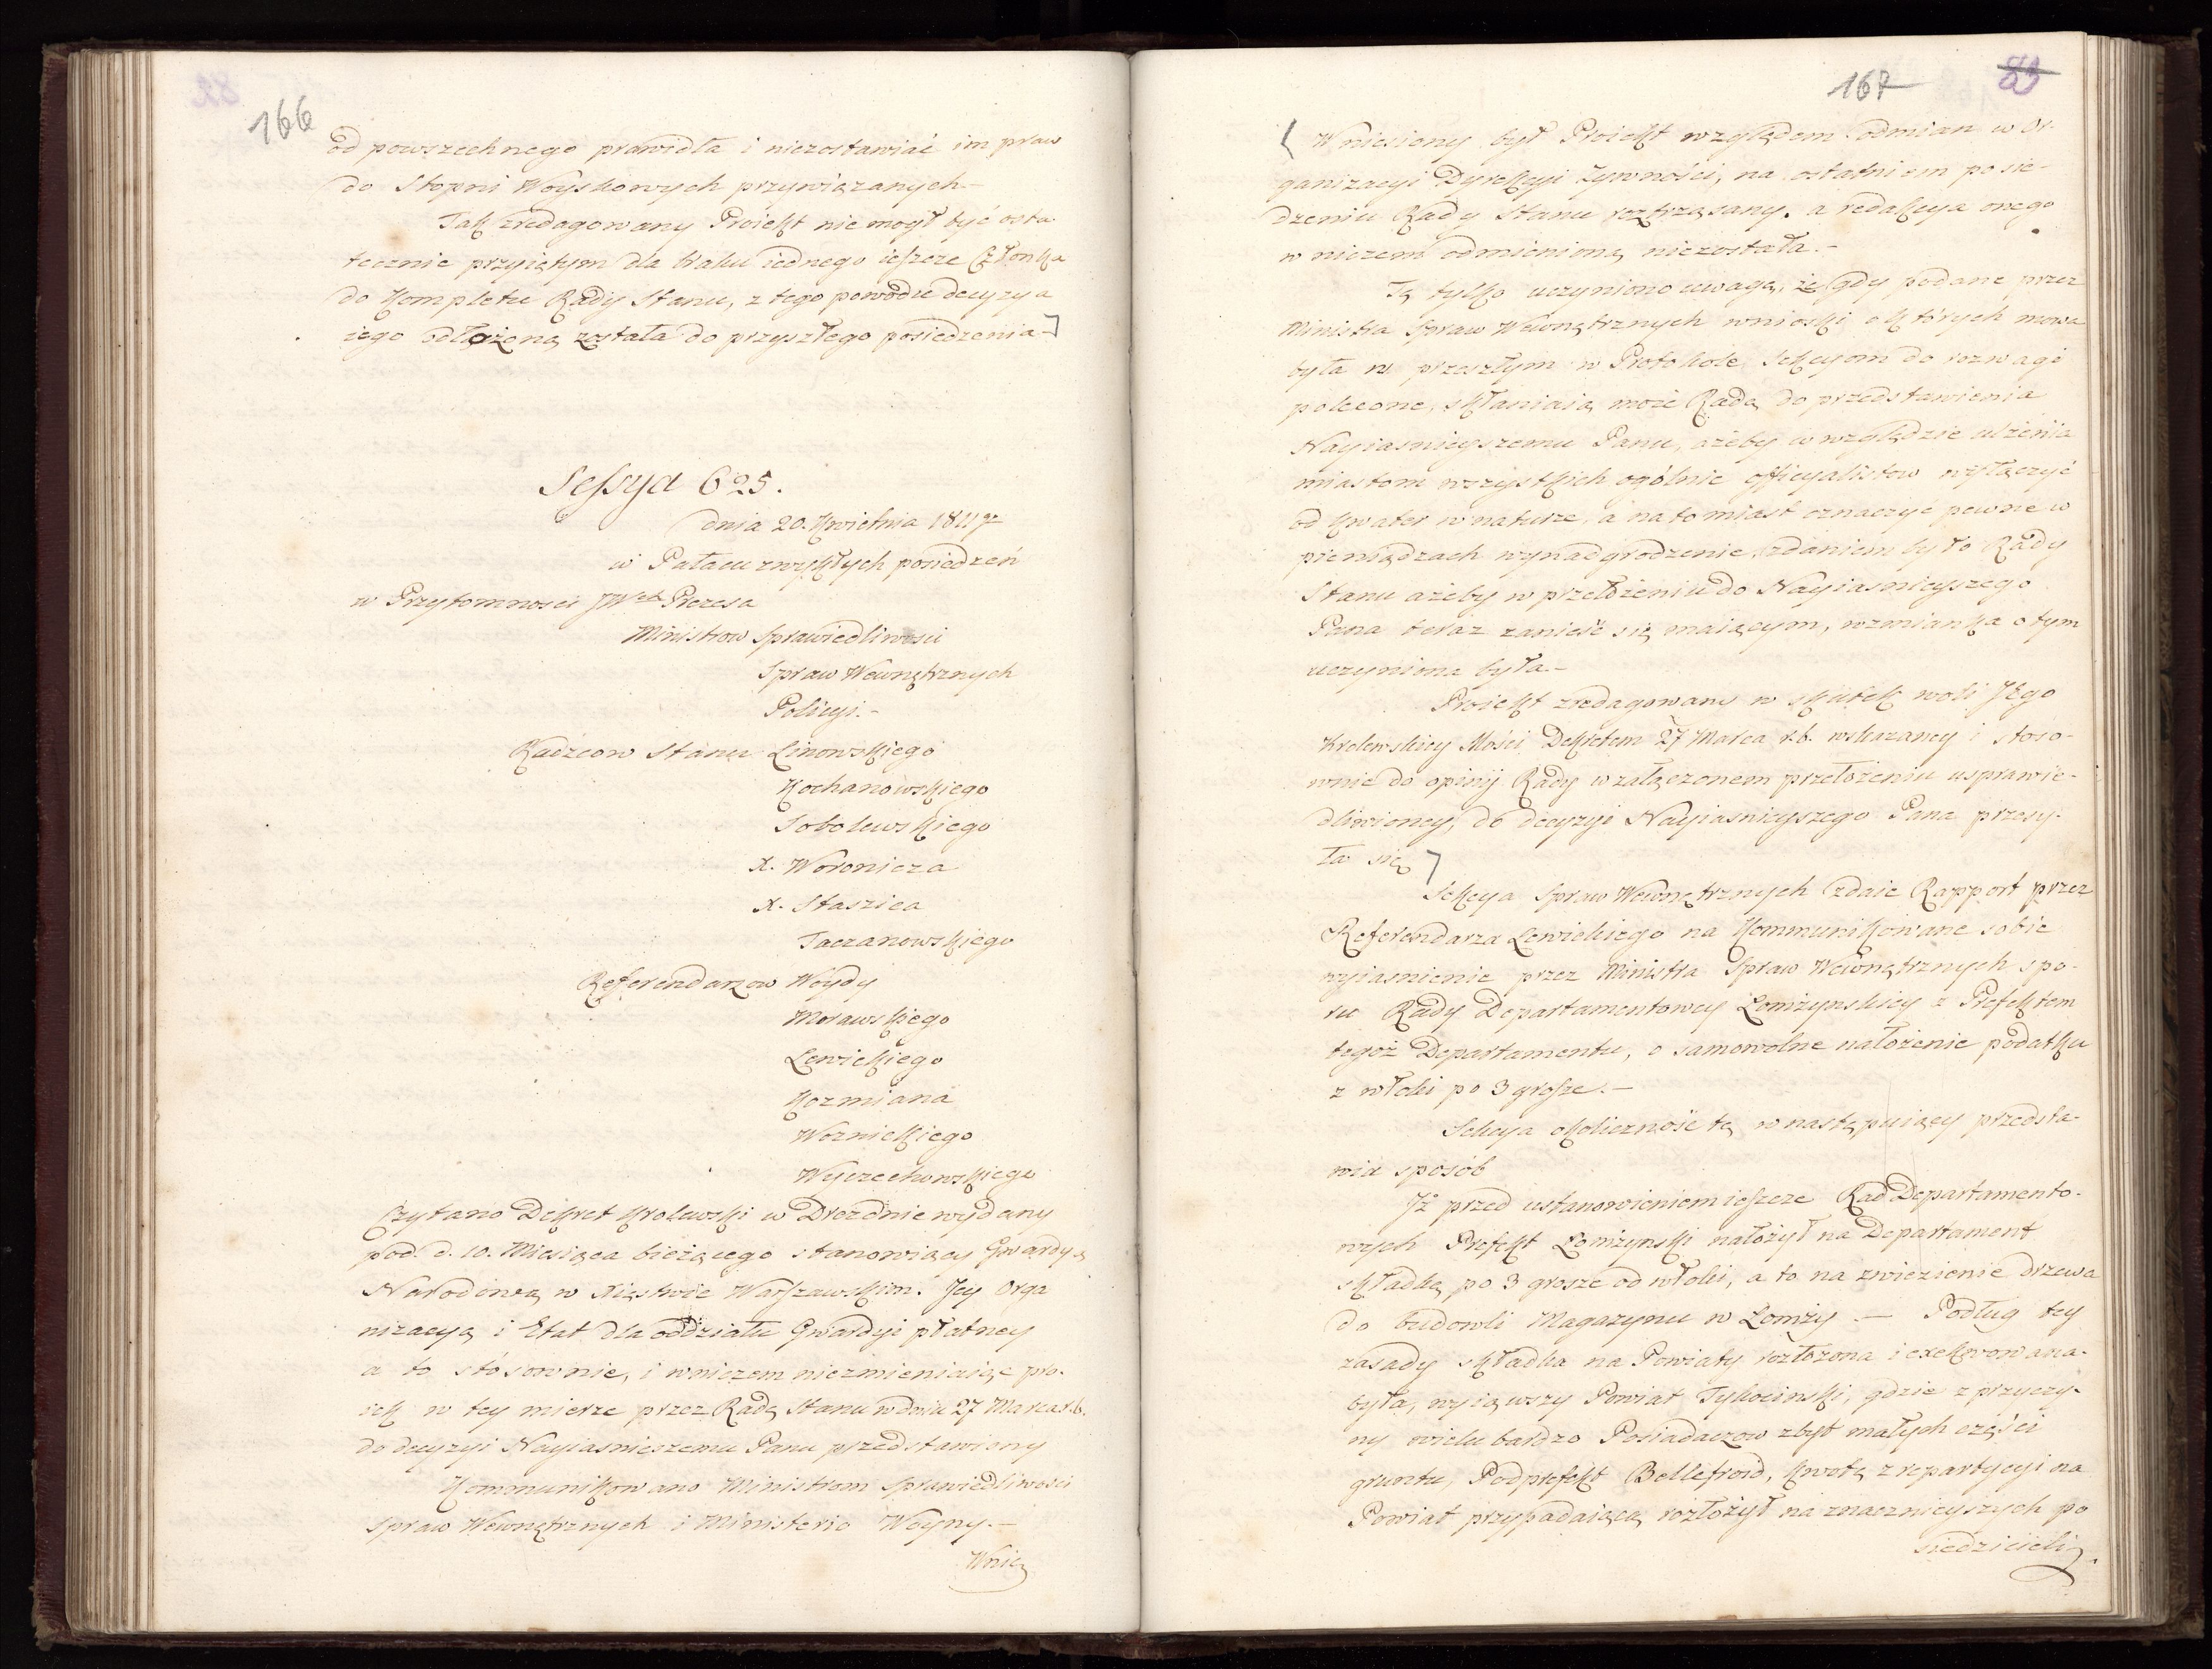 166
od powszechnego prawidła i niezostawiać im praw
do Stopni Woyskowych przywiązanych –
Tak zredagowany Proiekt nie mógł być osta-
tecznie przyiętym dla braku iednego ieszcze Członka
do Kompletu Rady Stanu, z tego powodu decyzya
iego odłożoną została do przyszłego posiedzenia –]
Sessya 625.
dnia 20. Kwietnia 1811 gº
w Pałacu zwykłych posiedzeń
w Przytomnosci JWch Prezesa
Ministrow Sprawiedliwosci
Spraw Wewnętrznych
Policyi. –
Radzcow Stanu Linowskiego
Kochanowskiego
Sobolewskiego
X. Woronicza
X. Staszica
Taczanowskiego
Referendarzow Woydy
Morawskiego
Lewickiego
Kozmiana
Woznickiego
Wyczechowskiego
Czytano Dekret Krolewski w Dreznie wydany
pod. d. 10. Miesiąca bieżącego stanowiący Gwardyą
Narodową w Xięstwie Warszawskim. Jey Orga
nizacyą i Etat dla oddziału Gwardyi płatney
a to stosownie, i wniczem niezmieniaiąc pro-
iekt w tey mierze przez Radę Stanu w dniu 27 Marca r.b.
do decyzyi Nayiasnieszemu Panu przedstawiony
Kommunikowano Ministrom Sprawiedliwości
Spraw Wewnętrznych i Ministerio Woyny. –
Wnie
167 83
[ Wniesiony był Proiekt względem odmian w Or-
ganizacyi Dyrekcyi Żywności, na ostatniem posie-
dzeniu Rady Stanu roztrząsany. a redakcya onego
w niczem odmienioną niezostała. –
Tę tylko uczyniono uwagę, że gdy podane przez
Ministra Spraw Wewnętrznych wnioski o których mowa
była w przeszłym w Protokole Sekcyom do rozwagi
polecone, skłaniaią może Radę do przedstawienia
Nayiasnieyszemu Panu, ażeby w względzie ulżenia
miastom wszystkich ogólnie officyalistow wyłączyć
od kwater w naturze, a natomiast oznaczyć pewne w
pieniądzach wynadgrodzenie, zdaniem było Rady
Stanu ażeby w przełożeniu do Nayiasnieyszego
Pana teraz zanieść się maiącym, wzmianka o tym
uczyniona była. –
Proiekt zredagowany w skutek woli JEgo
Krolewskiey Mości Dekretem 27 Marca r.b. wskazaney i stoso-
wnie do opinij Rady w załączonem przełożeniu usprawie-
dliwioney, do decyzyi Nayiasnieyszego Pana przesy-
ła się ]
Sekcya Spraw Wewnętrznych zdaie Rapport przez
Referendarza Lewickiego na Kommunikowane sobie
wyiasnienie przez Ministra Spraw Wewnętrznych spo-
ru Rady Departamentowey Łomżynskiey z Prefektem
tegoż Departamentu, o samowolne nałożenie podatku
z włoki po 3 grosze. –
Sekcya okoliczność tę w następuiący przedsta-
wia sposób
Iż przed ustanowieniem ieszcze Rad Departamento-
wych Prefekt Łomżynski nałożył na Departament
składkę po 3 grosze od włoki, a to na zwiezienie drzewa
do budowli Magazynu w Łomży. – Podług tey
zasady składka na Powiaty rozłożona i exekwowana
była, wyiąwszy Powiat Tykocinski, gdzie z przyczy-
ny wielu bardzo Posiadaczow zbyt małych części
gruntu, Podprefekt Bellefroid, kwotę z repartycyi na
Powiat przypadaiącą rozłożył na znacznieyszych po
siedzicieli,